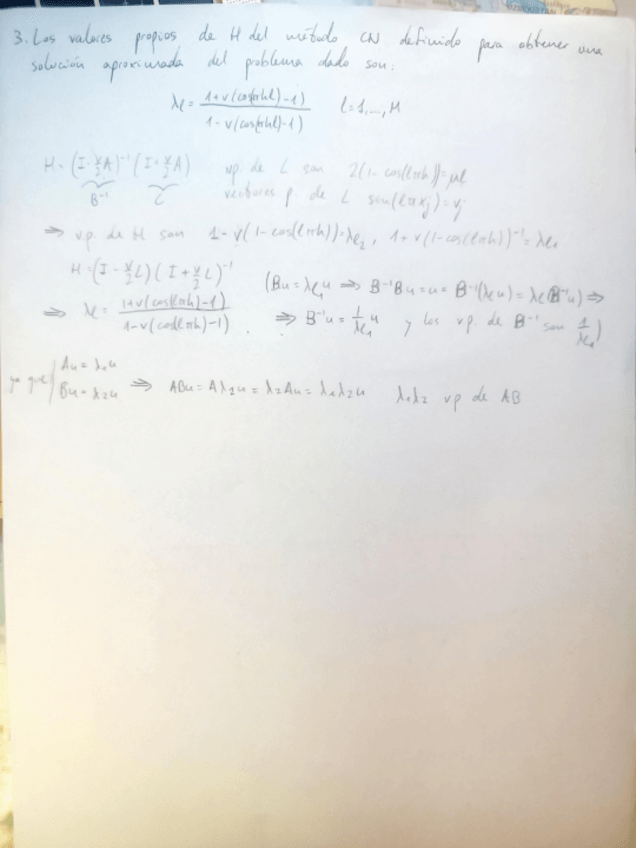 3. Los valores propios de H del método CN definido para obtener una
solución aproximada del problema dado son:
λℓ = (1+ν(cos(πhℓ)-1))/(1-ν(cos(πhℓ)-1)) ℓ=1,...,M
H = (I - ν/2 A)⁻¹ (I + ν/2 A) vp. de L son 2(1-cos(ℓπh))=μℓ
B⁻¹ C vectores p. de L sen(ℓπxj)=vj
⇒ vp. de H son 1-ν(1-cos(ℓπh))=λℓ₂, 1+ν(1-cos(ℓπh))⁻¹=λℓ₁
H = (I - ν/2 L)(I + ν/2 L)⁻¹ (Bu = λℓ₁u ⇒ B⁻¹Bu = u = B⁻¹(λℓu) = λℓ(B⁻¹u) ⇒
⇒ λℓ = (1+ν(cos(ℓπh)-1))/(1-ν(cos(ℓπh)-1)). ⇒ B⁻¹u = 1/λℓ₁ u y los vp. de B⁻¹ son 1/λℓ₁)
ya que Au = λ₁u
Bu = λ₂u ⇒ ABu = Aλ₂u = λ₂Au = λ₁λ₂u λ₁λ₂ vp de AB